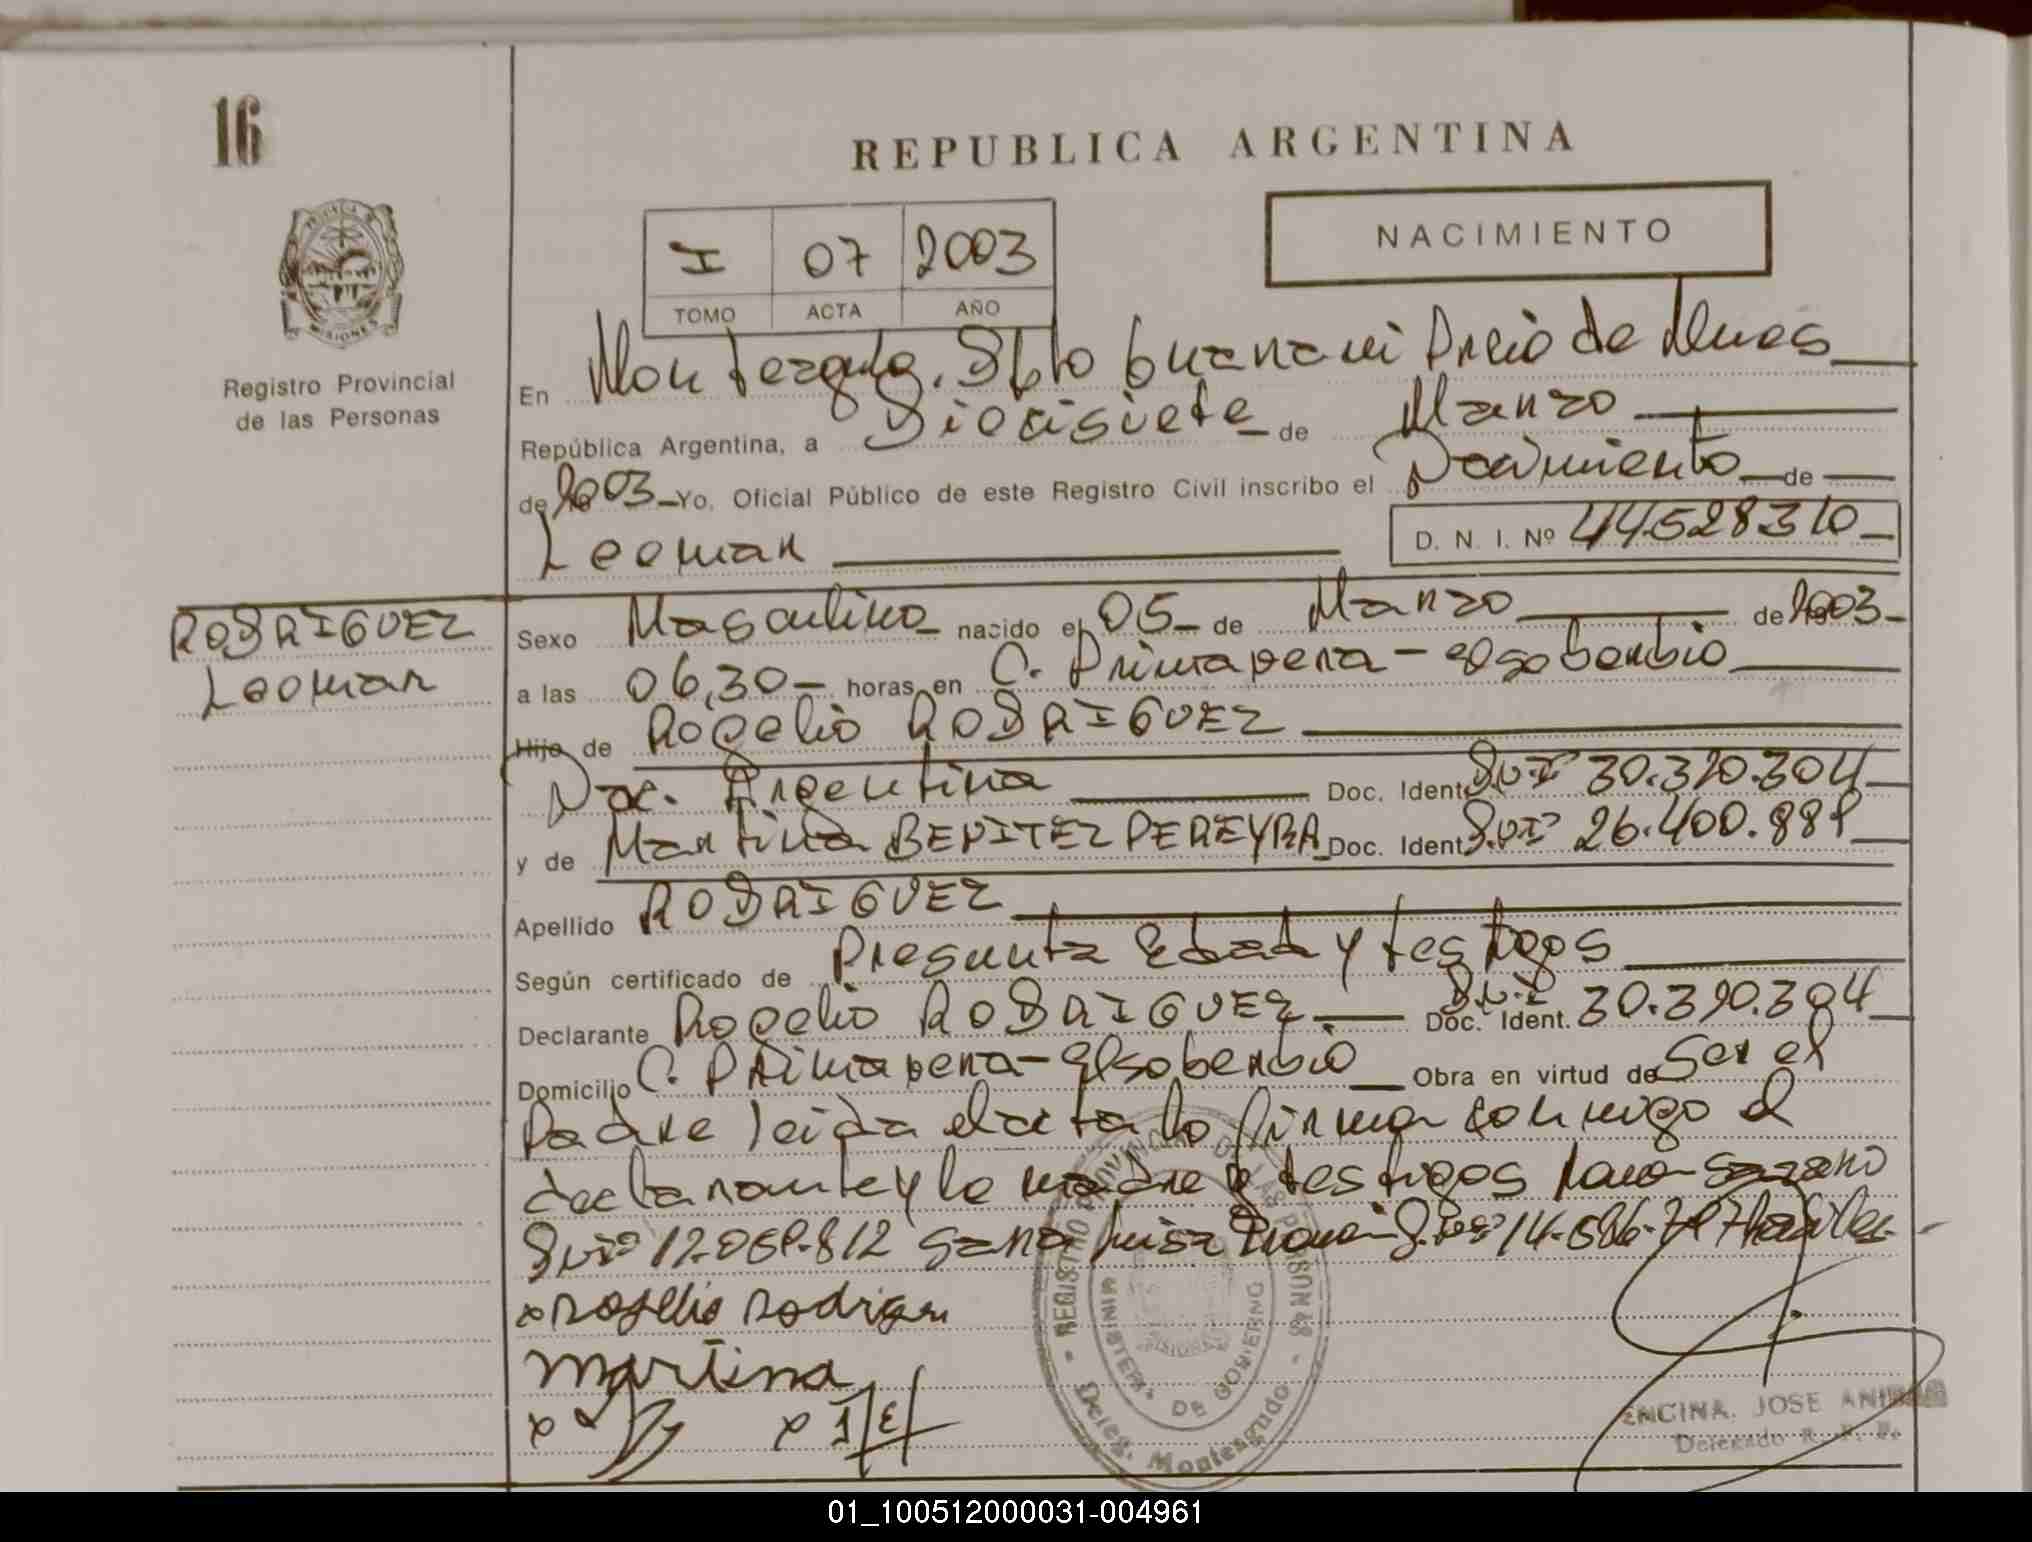 16
REPUBLICA ARGENTINA
PROVINCIA DE
MISIONES
Registro Provincial
de las Personas
I 07 2003
TOMO ACTA AÑO
NACIMIENTO
En Monteagudo, Dpto Guarani Pcia de Mnes
República Argentina, a Diecisiete de Marzo
de 2003 Yo, Oficial Público de este Registro Civil inscribo el Nacimiento de
Leomar D. N. I. Nº 44528310
RODRIGUEZ
Leomar
Sexo Masculino nacido el 05 de Marzo de 2003
a las 06,30 horas en C. Primavera - El soberbio
Hijo de Rogelio RODRIGUEZ
Nac. Argentina Doc. Ident. DNIº 30.390.304
y de Martina BENITEZ PEREYRA Doc. Ident. DNIº 26.400.889
Apellido RODRIGUEZ
Según certificado de Presunta Edad y testigos
Declarante Rogelio RODRIGUEZ Doc. Ident. DNIº 30.390.304
Domicilio C. Primavera - El soberbio Obra en virtud de Ser el
Padre leida el acta lo firman conmigo el
declarante y la madre y testigos
DNIº 12.069.812 Luisa DNIº 14.
x Rogelio Rodrigu
martina
x x
REGISTRO PROVINCIAL DE LAS PERSONAS
MINISTERIO DE GOBIERNO
MISIONES
Deleg. Monteagudo
ENCINA, JOSE ANIBAL
Delegado R. P. P.
01_100512000031-004961